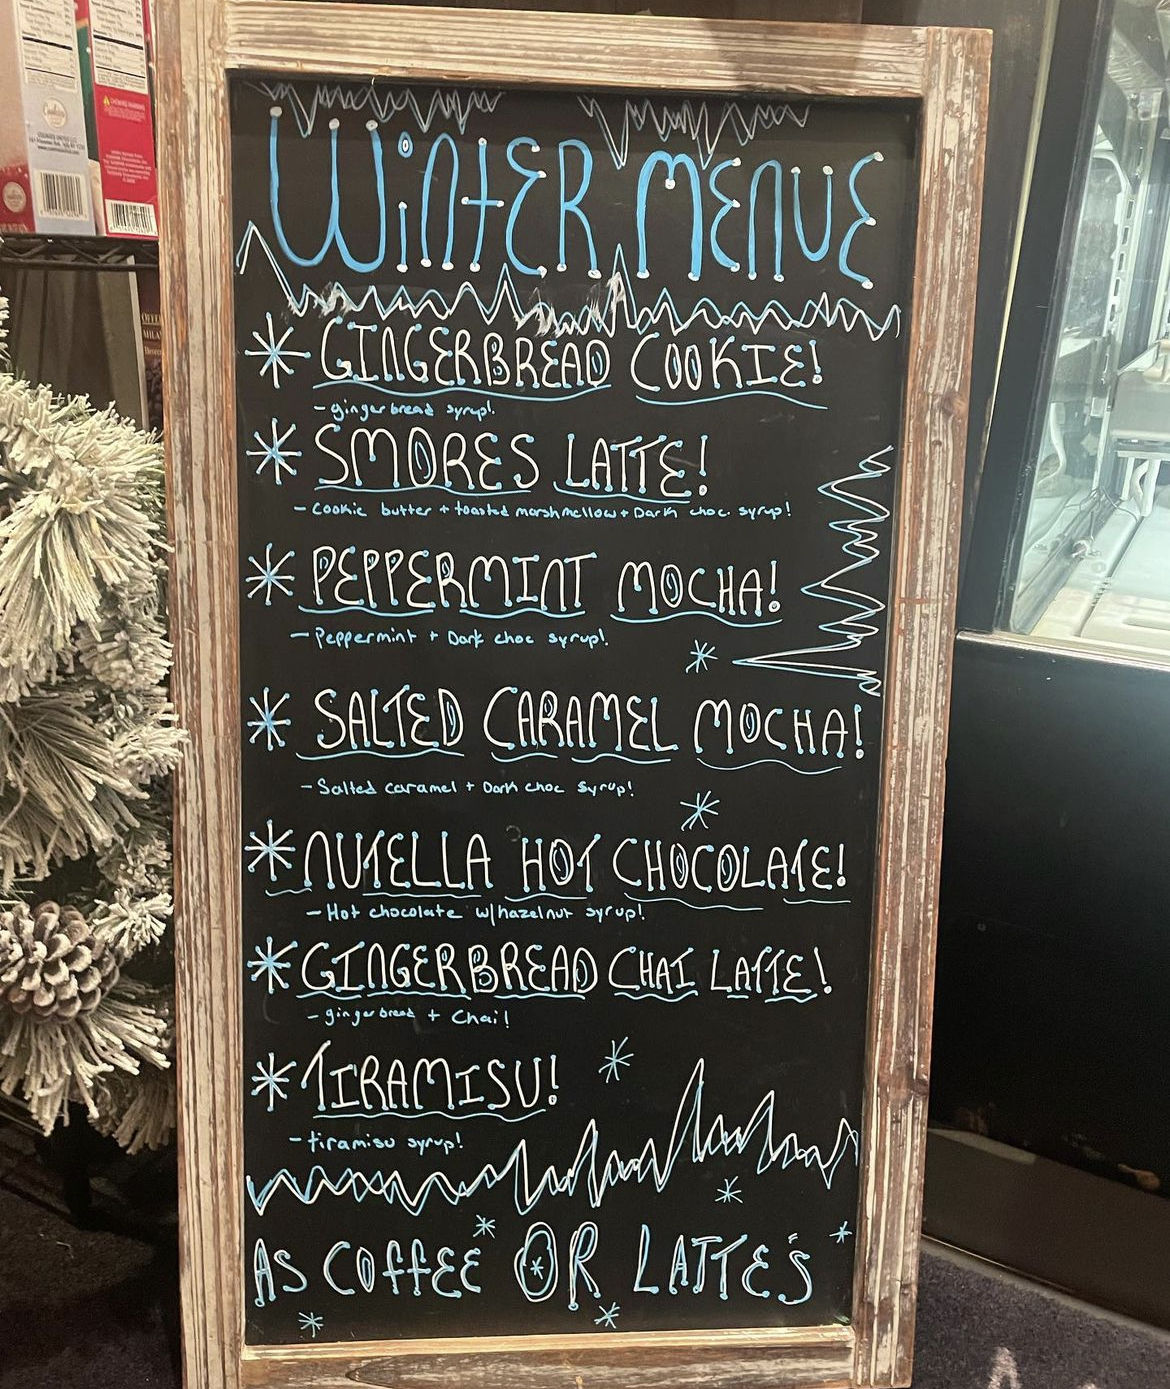 WintER MENUE
* GINGERBREAD COOKIE!
- gingerbread syrup!
* SMORES LATTE!
- Cookie butter + toasted marshmellow + Dark choc. syrup!
* PEPPERMINT MOCHA!
- Peppermint + Dark choc syrup!
* SALTED CARAMEL MOCHA!
- Salted caramel + Dark choc syrup!
* NUTELLA HOT CHOCOLATE!
- Hot chocolate w/hazelnut syrup!
* GINGERBREAD CHAI LATTE!
- gingerbread + Chai!
* TIRAMISU!
- tiramisu syrup!
AS COffEE OR LATTE'S